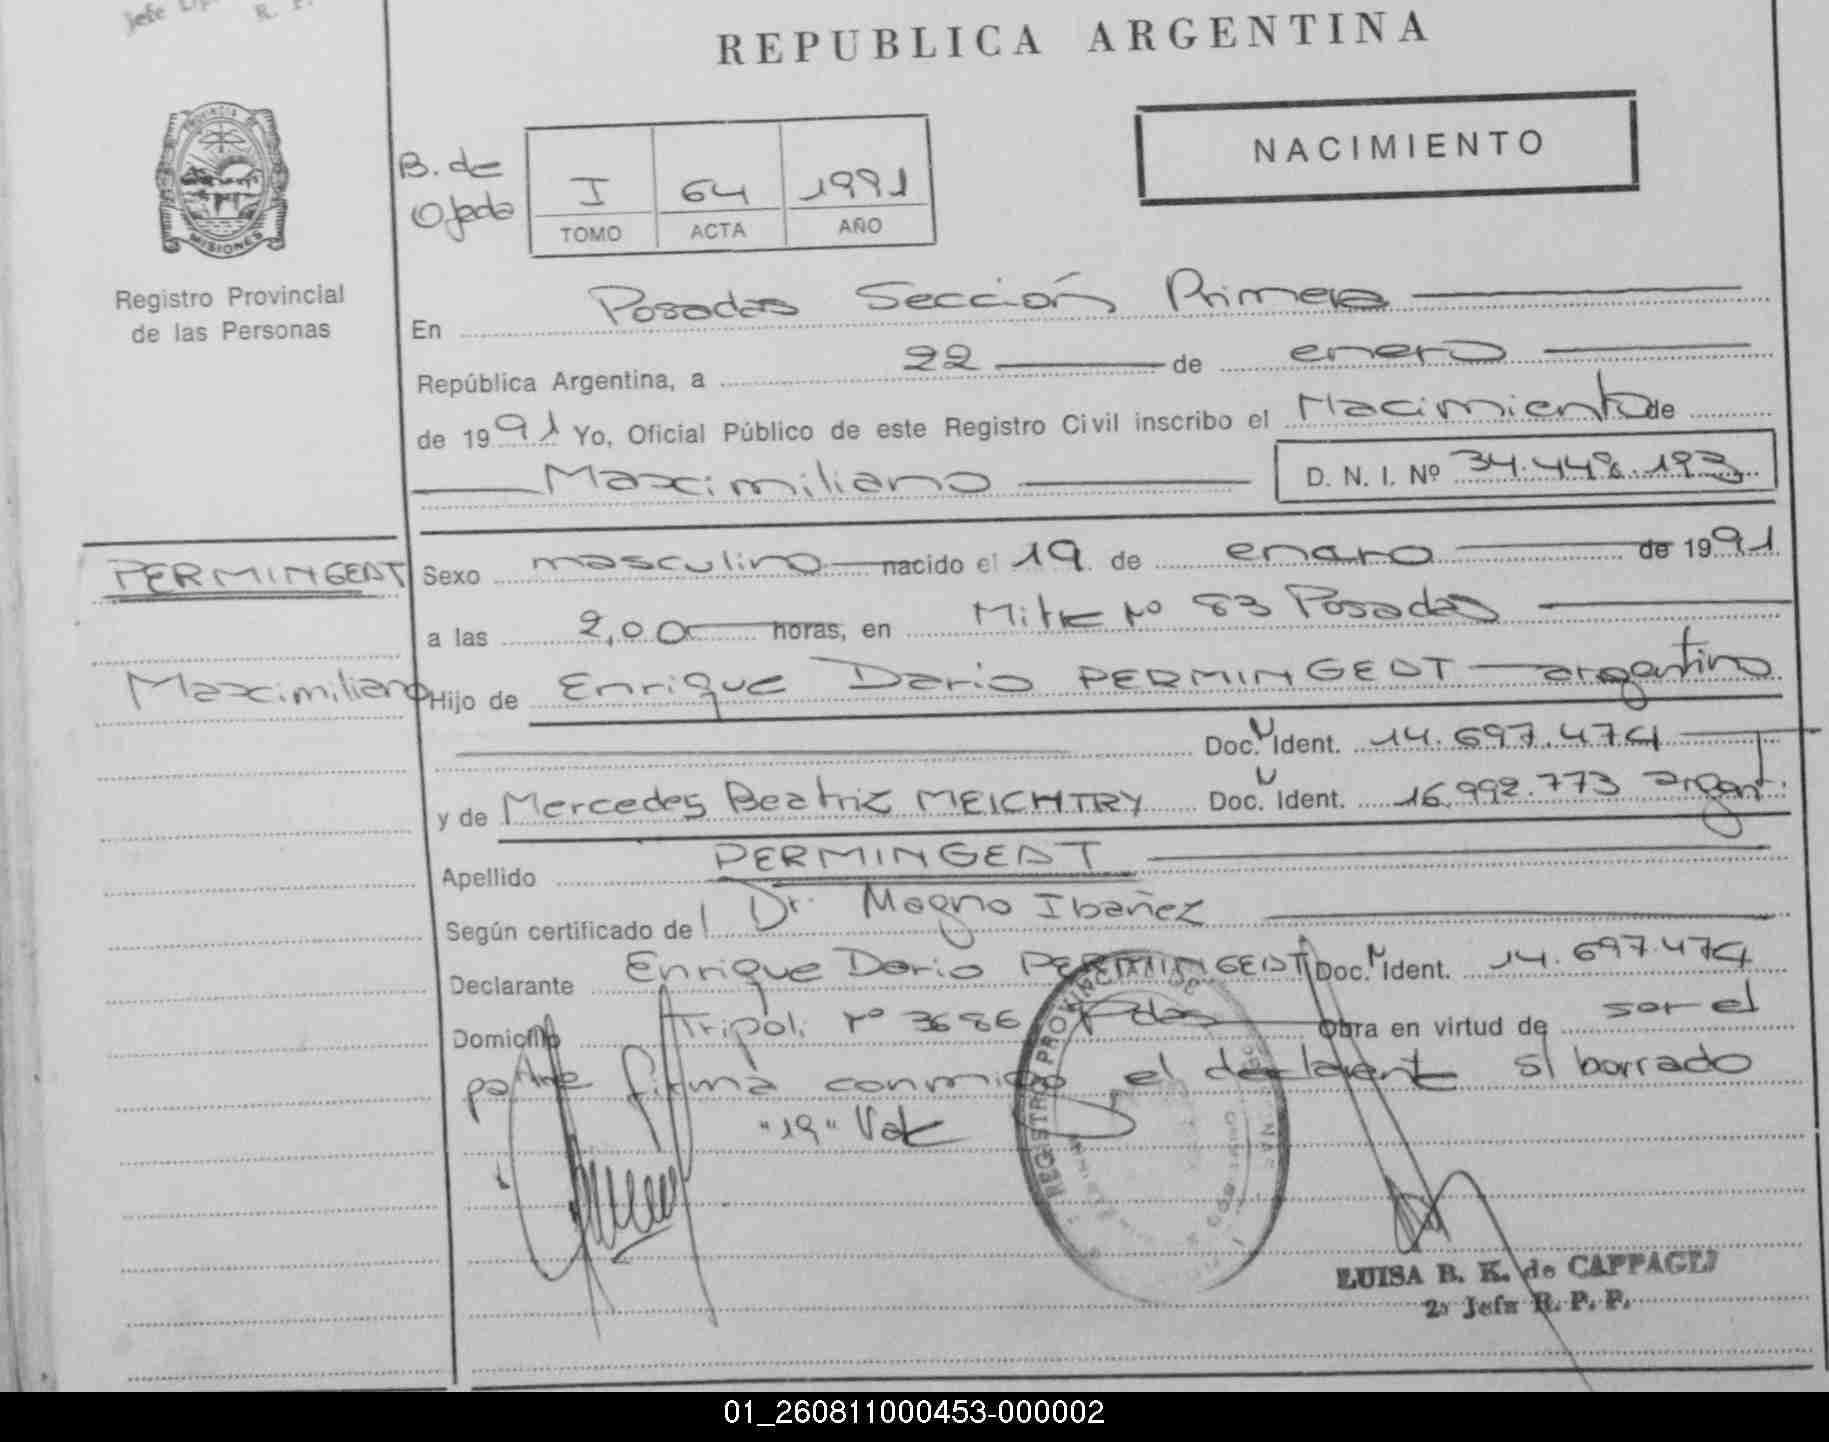 Jefe
R. P.
REPUBLICA ARGENTINA
PROVINCIA DE
MISIONES
Registro Provincial
de las Personas
B. de
Ojeda
I 64 1991
TOMO ACTA AÑO
NACIMIENTO
En Posadas Sección Primera
República Argentina, a 22 de enero
de 1991 Yo, Oficial Público de este Registro Civil inscribo el Nacimiento de
Maximiliano D. N. I. Nº 34.448.193
PERMINGEAT
Maximiliano
Sexo masculino nacido el 19 de enero de 1991
a las 2,00 horas, en Mitre Nº 83 Posadas
Hijo de Enrique Dario PERMINGEAT argentino
Doc. N Ident. 14.697.474
y de Mercedes Beatriz MEICHTRY Doc. N Ident. 16.992.773 argent.
Apellido PERMINGEAT
Según certificado del Dr. Magno Ibañez
Declarante Enrique Dario PERMINGEAT Doc. N Ident. 14.697.474
Domicilio Tripoli Nº 3686 Pdas Obra en virtud de ser el
padre firma conmigo el declarante s/ borrado
"19" Vale
REGISTRO PROVINCIAL DE
LUISA B. K. de CAPPAGLI
2ª Jefa R. P. P.
01_260811000453-000002